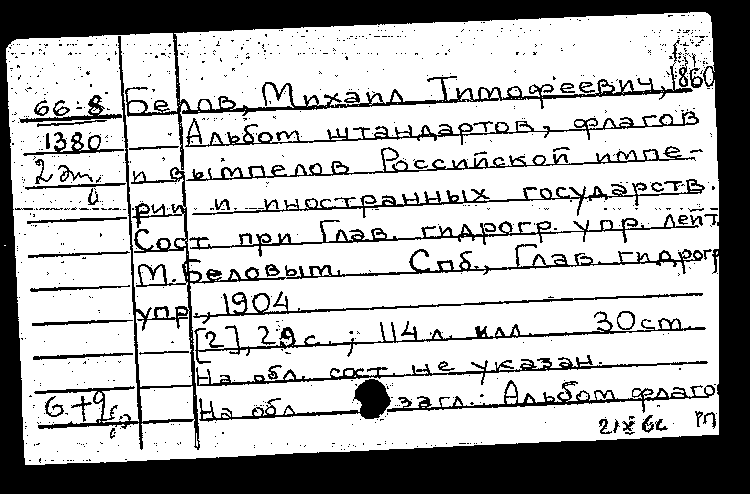 66-8 Белов, Михаил Тимофеевич, 1860
1380 Альбом штандартов, флагов
2 эт. и вымпелов Российской импе-
рии и иностранных государств.
Сост. при Глав. гидрогр. упр. лейт.
М. Беловым. Спб., Глав. гидрогр.
упр., 1904.
[2], 29 с. ; 114 л. илл. 30 cm.
На обл. сост. не указан.
На обл загл.: Альбом флаго